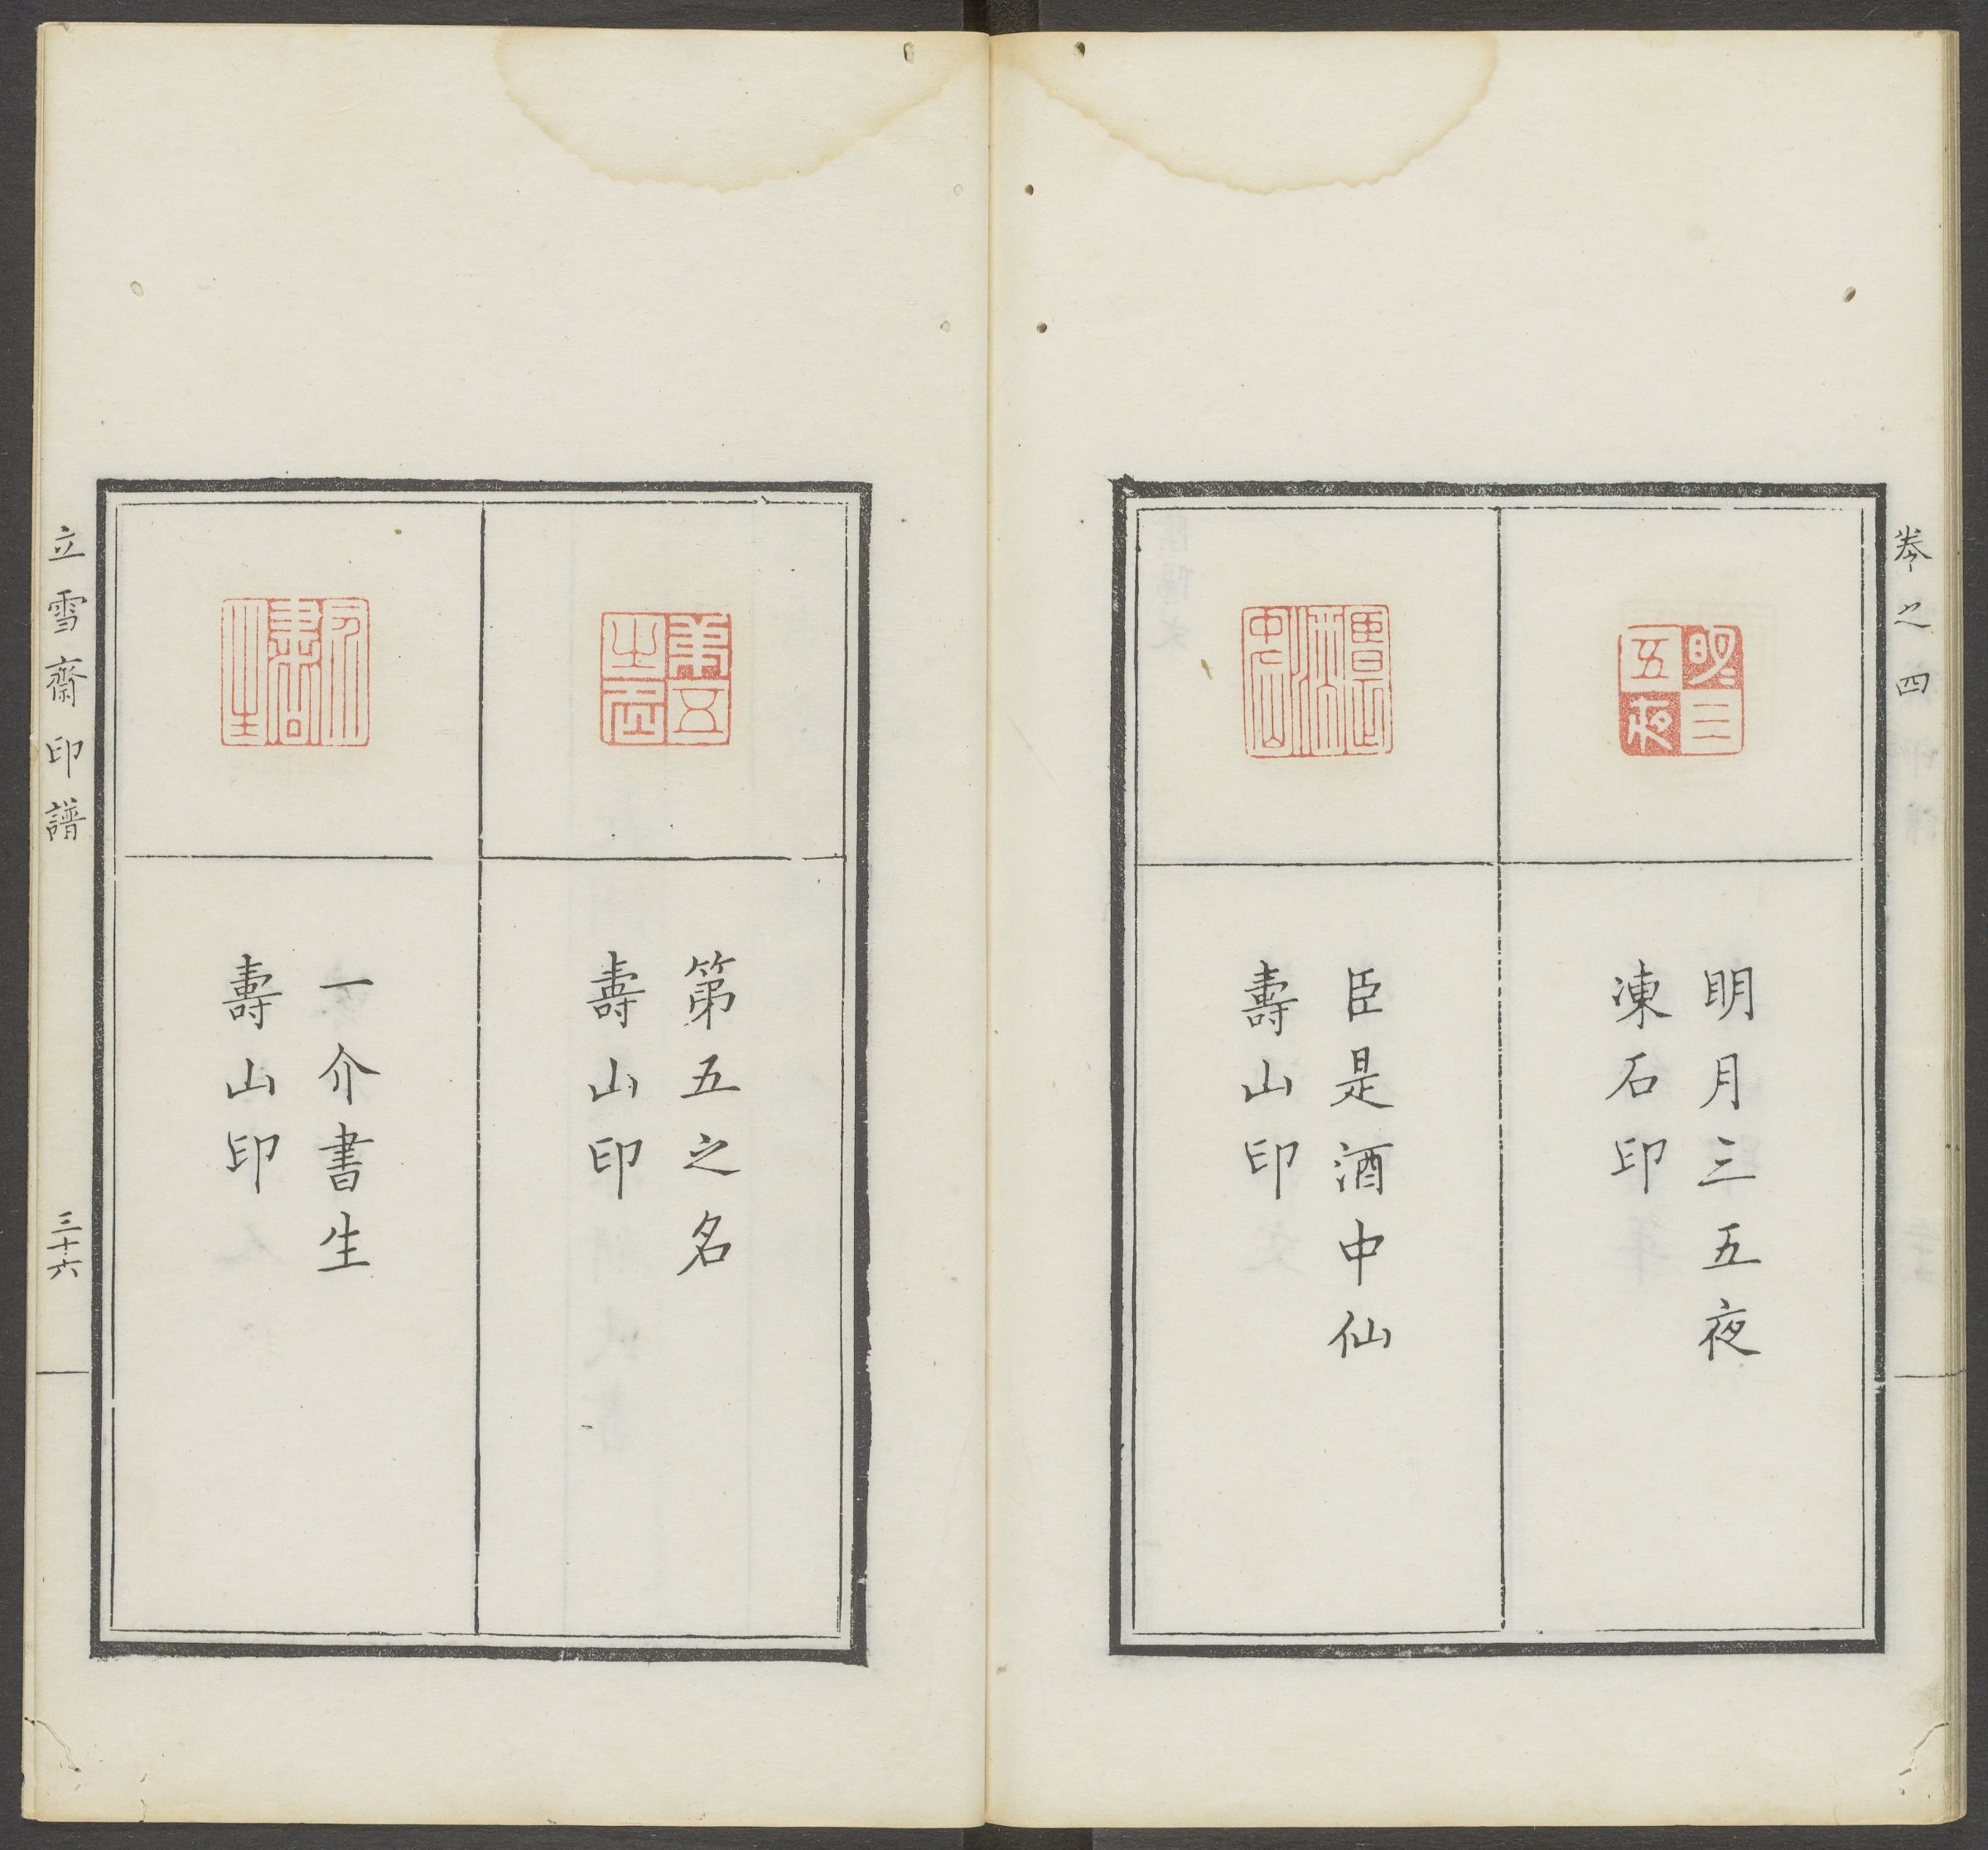 卷之四
明月三五夜
凍石印
臣是酒中仙
壽山印
第五之名
壽山印
一介書生
壽山印
立雪齋印譜
三十六